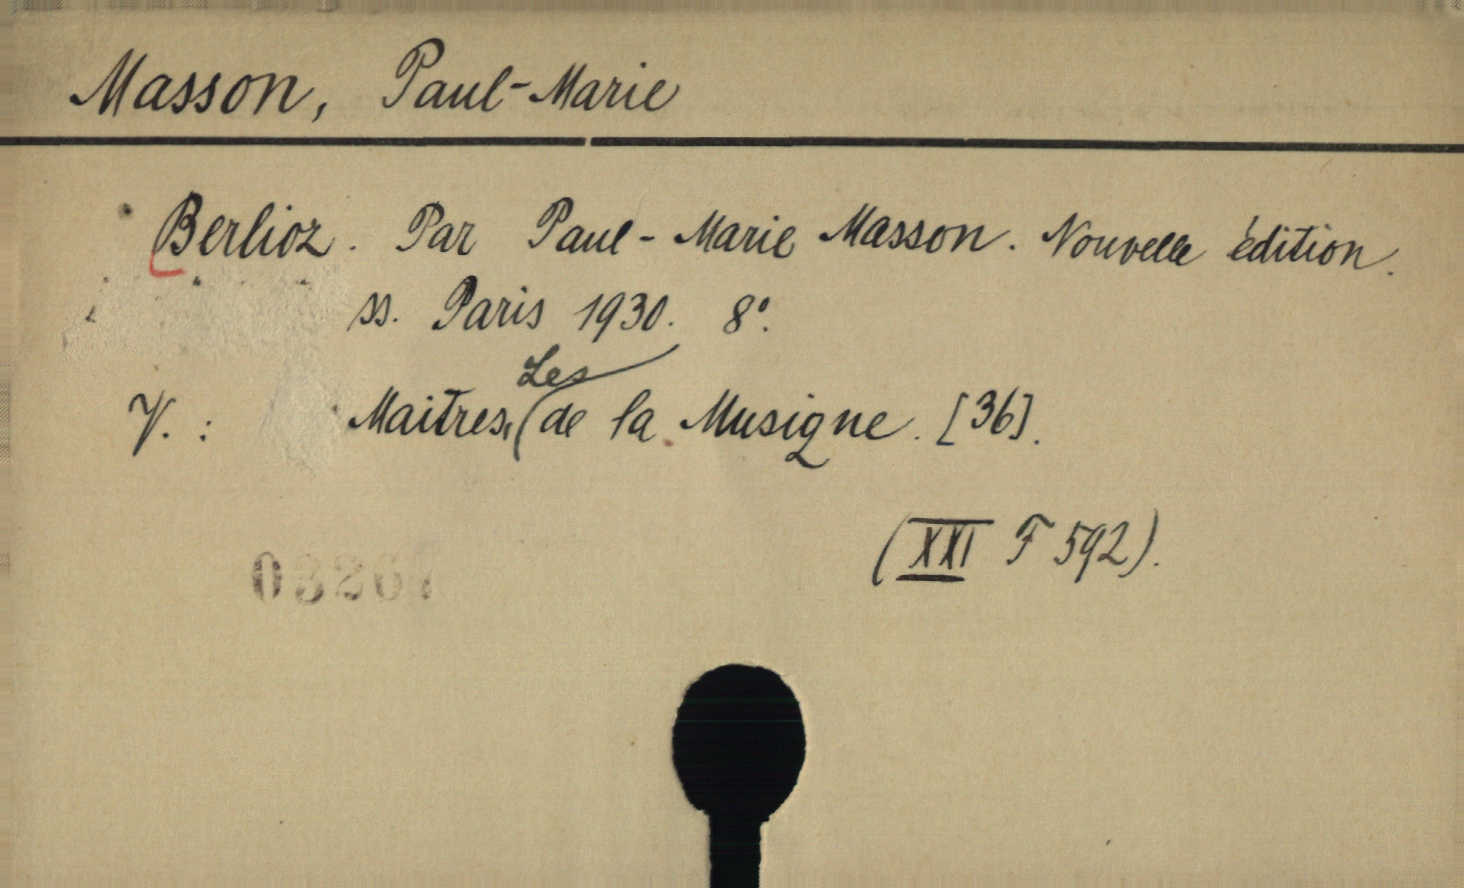 Masson, Paul-Marie
Berlioz. Par Paul-Marie Masson. Nouvelle édition.
ss. Paris 1930. 8°.
Les
V. : Maitres, (de la Musique. [36].
(XXI F 592).